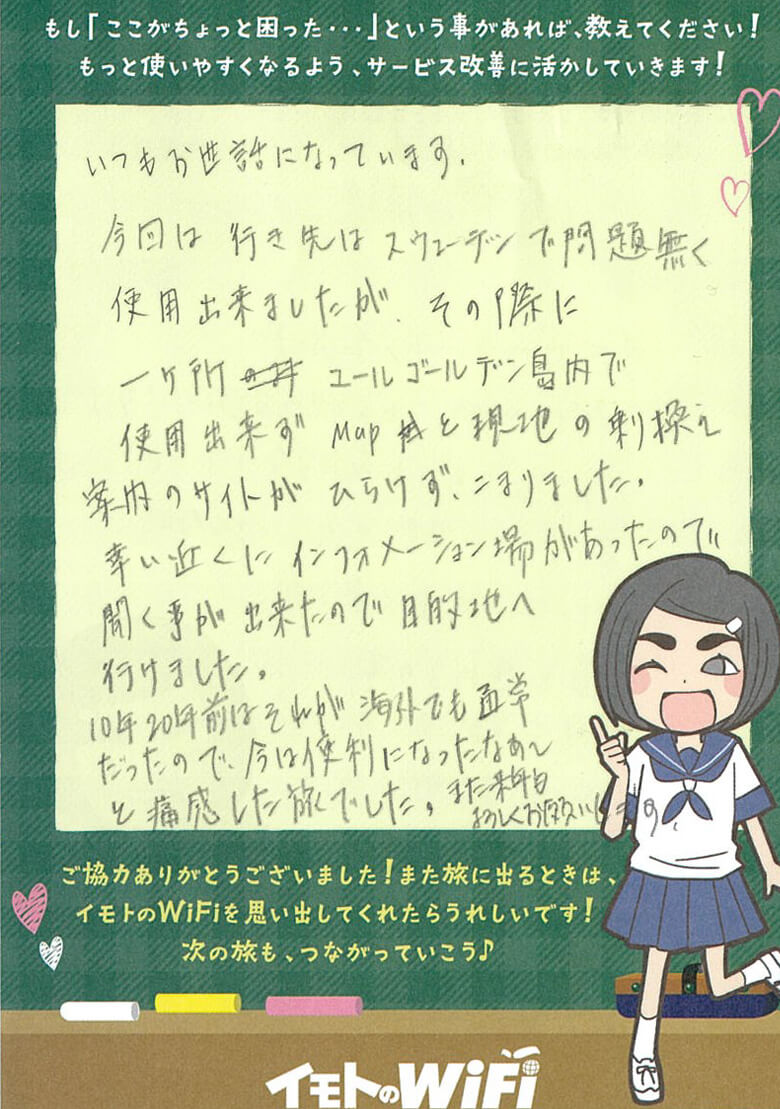 もし「ここがちょっと困った･･･」という事があれば、教えてください!
もっと使いやすくなるよう、サービス改善に活かしていきます!
いつもお世話になっています.
今回は 行き先は スウェーデンで問題無く
使用出来ましたが、その際に
一ヶ所 ユールゴールデン島内で
使用出来ず Map と現地の乗換え
案内のサイトが ひらけず、こまりました。
幸い近くに インフォメーション場があったので
聞く事が出来たので目的地へ
行けました。
10年20年前はそれが海外でも通常
だったので、今は便利になったなあ〜
と痛感した旅でした。また来年も
よろしくお願いします.
ご協力ありがとうございました!また旅に出るときは、
イモトのWiFiを思い出してくれたらうれしいです!
次の旅も、つながっていこう♪
イモトのWiFi